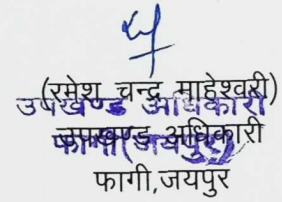 (रमेश चन्द्र माहेश्वरी)
उपखण्ड अधिकारी
उपखण्ड अधिकारी
फागी (जयपुर)
फागी,जयपुर